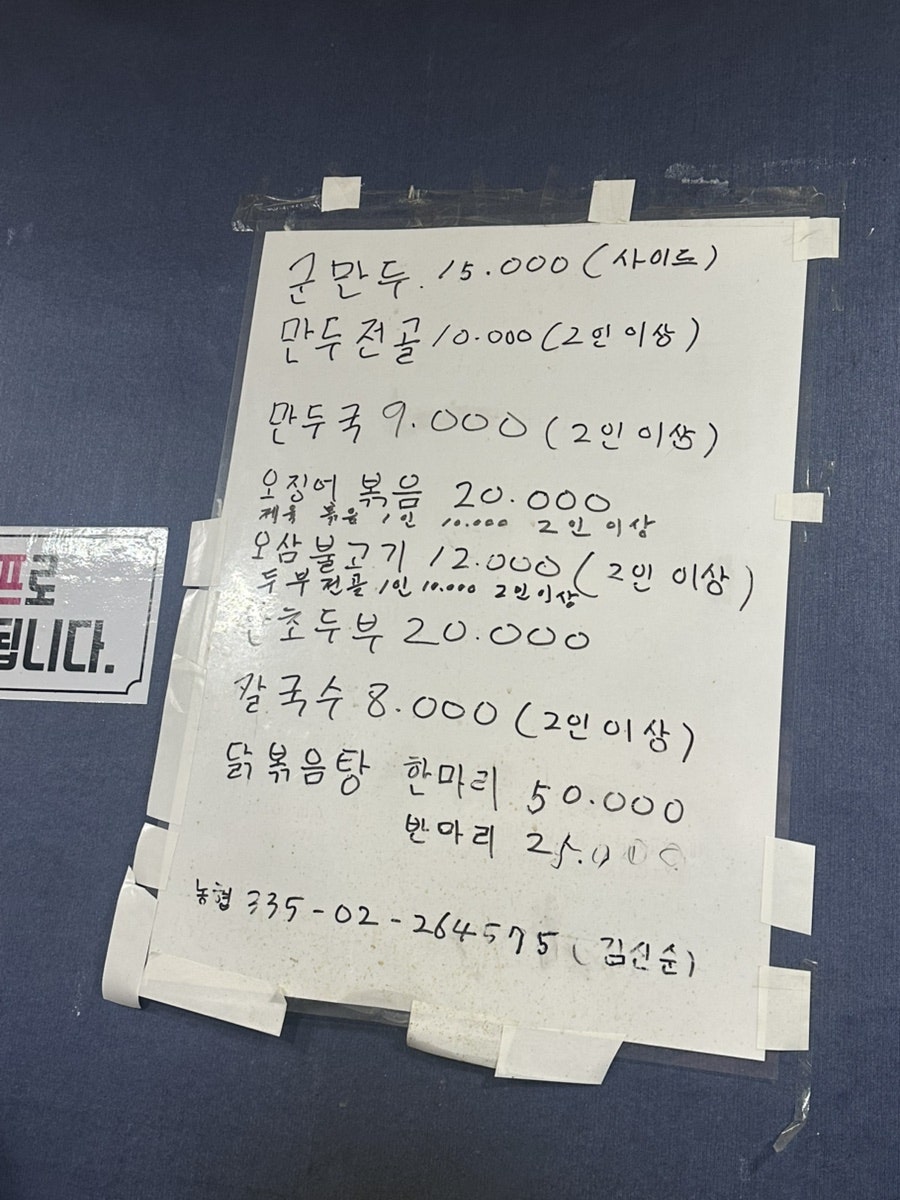 군만두. 15.000 (사이드)
만두전골 10.000 (2인 이상)
만두국 9.000 (2인 이상)
오징어 볶음 20.000
제육 볶음 1인 10.000 2인 이상
오삼불고기 12.000 (2인 이상)
두부전골 1인 10.000 2인이상
초두부 20.000
칼국수 8.000 (2인 이상)
닭볶음탕 한마리 50.000
반마리 25.000
농협 335-02-264575 (김신순)
프로
됩니다.